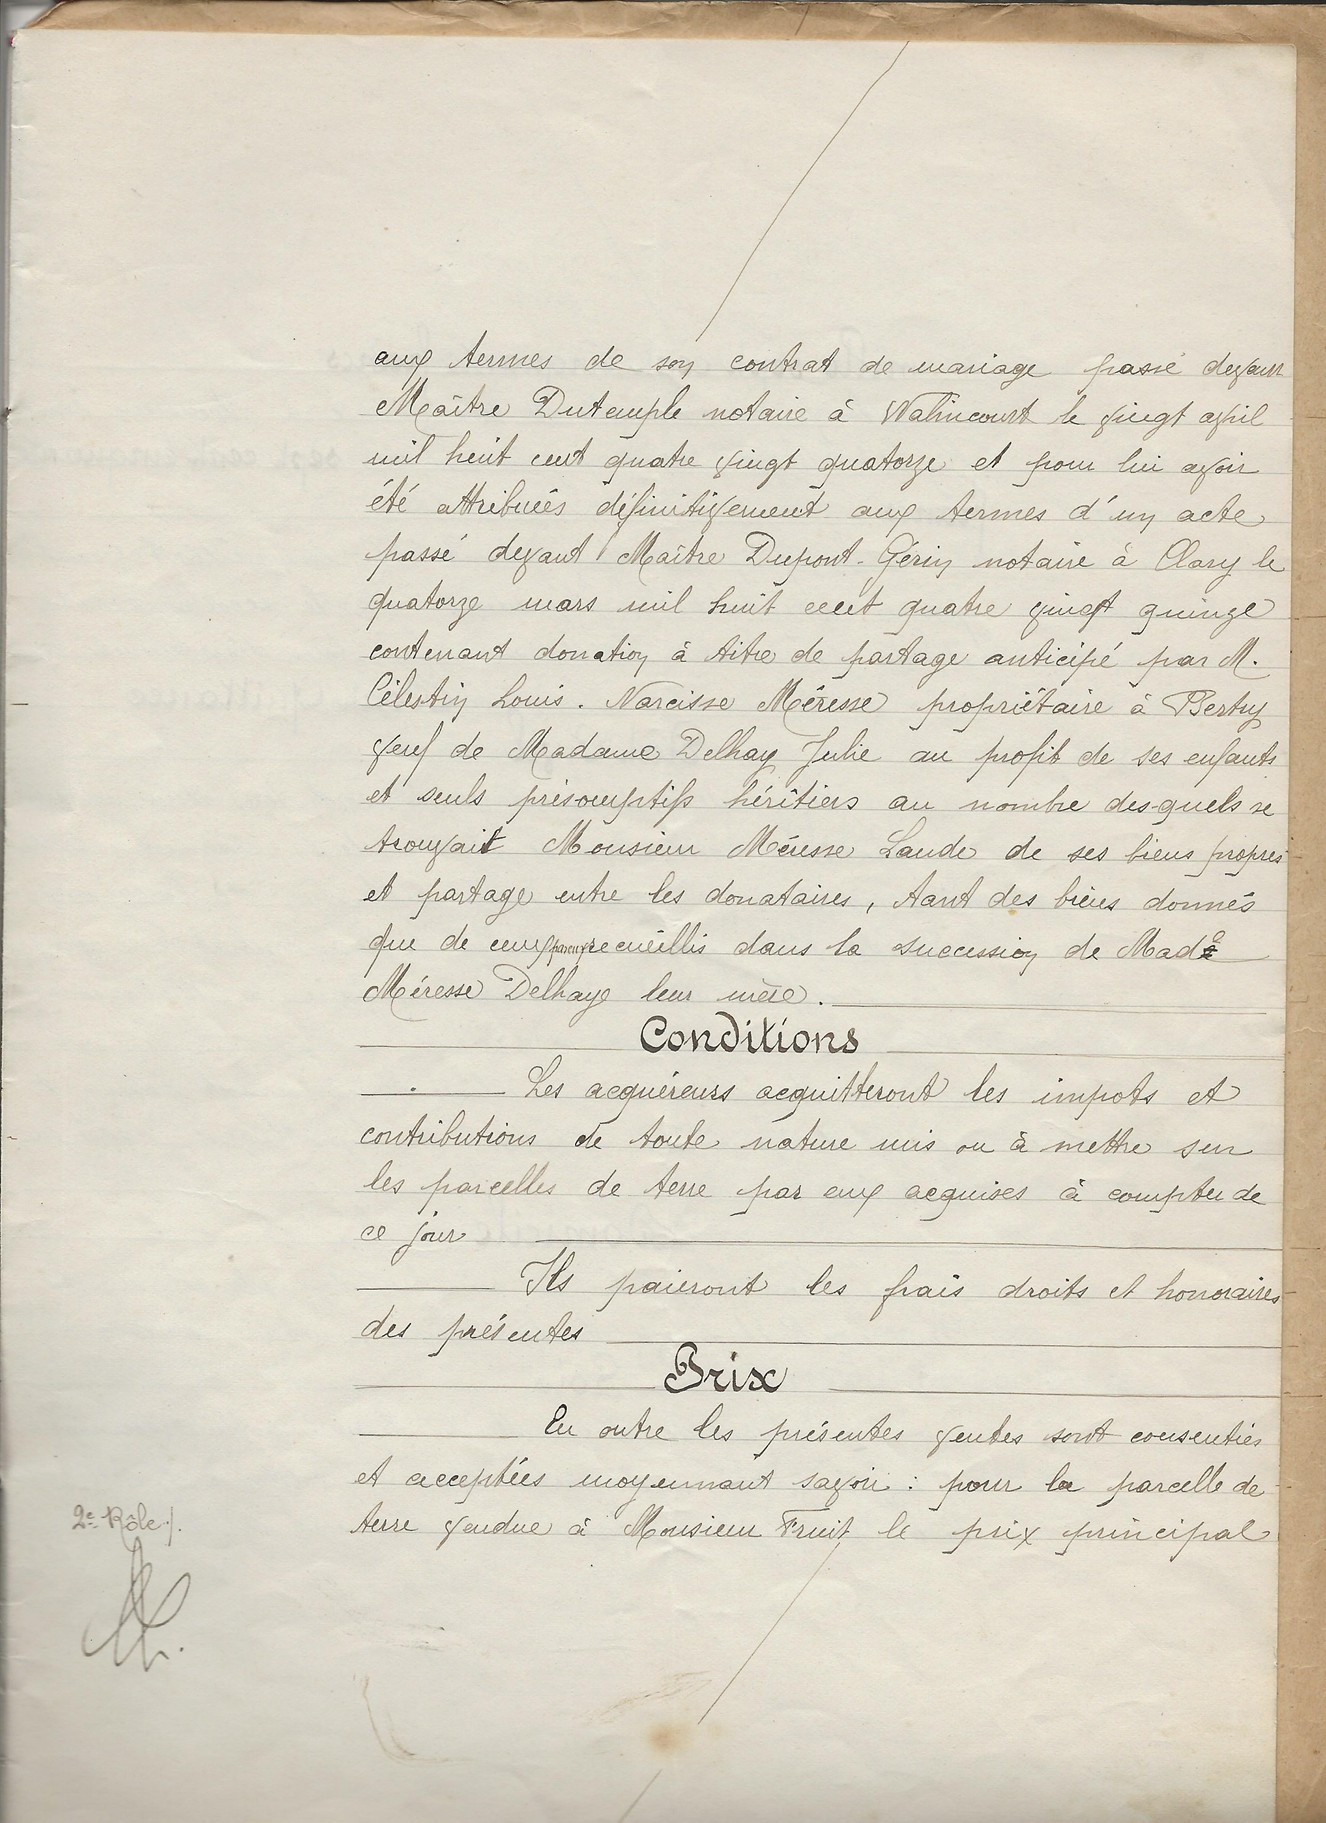 aux termes de son contrat de mariage passé devant
Maître Dutemple notaire à Walincourt le vingt avril
mil huit cent quatre vingt quatorze et pour lui avoir
été attribuées définitivement aux termes d'un acte
passé devant Maître Dupont-Gérin notaire à Clary le
quatorze mars mil huit cent quatre vingt quinze
contenant donation à titre de partage anticipé par M.
Célestin Louis. Narcisse Méresse propriétaire à Bertry
veuf de Madame Delhay Julie au profit de ses enfants
et seuls présomptifs héritiers au nombre des-quels se
trouvait Monsieur Méresse Lande de ses biens propres
et partage entre les donataires, tant des biens donnés
que de ceux par eux recueillis dans la succession de Made
Méresse Delhaye leur mère.
Conditions
Les acquéreurs acquitteront les impots et
contributions de toute nature mis ou à mettre sur
les parcelles de terre par eux acquises à compter de
ce jour
Ils paieront les frais droits et honoraires
des présentes
Prix
En outre les présentes ventes sont consenties
et acceptées moyennant savoir : pour la parcelle de
terre vendue à Monsieur Fruit le prix principal
2e Rôle./.